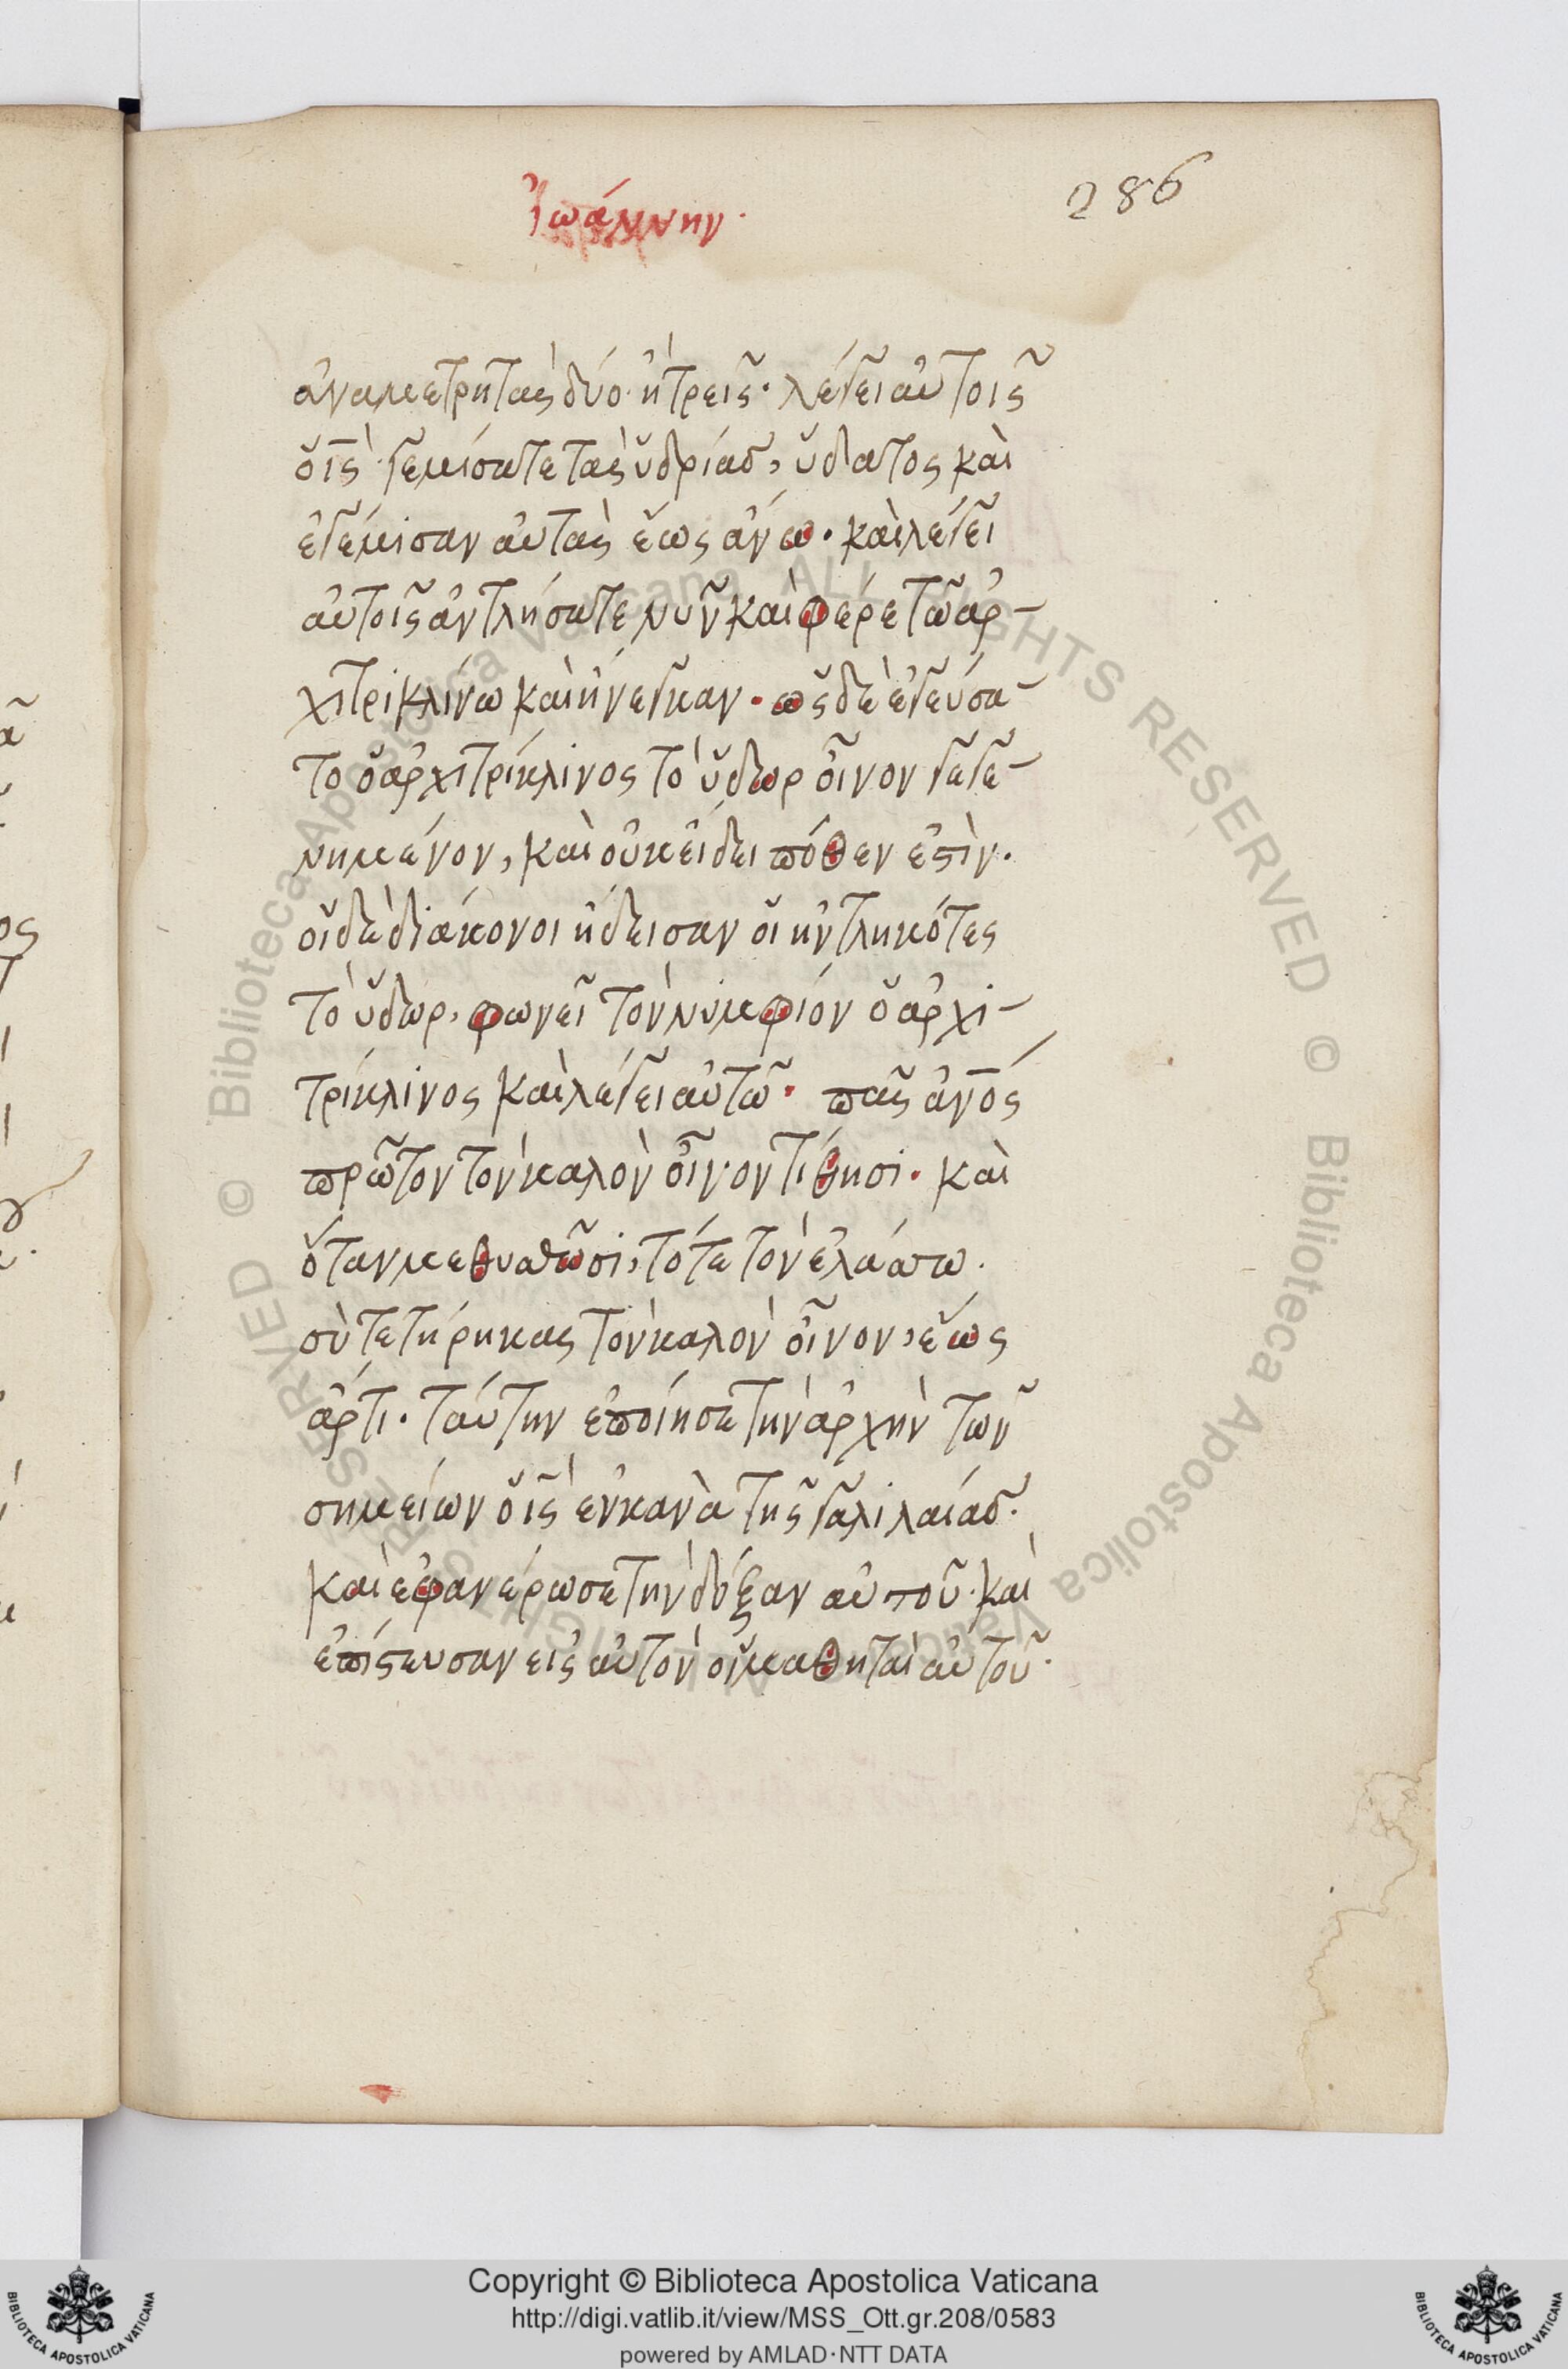 Ἰωάννην·
286
ἀναμετρητὰς δύο· ἢ τρεῖς· λέγει αὐτοῖς
ὁ ις̅· γεμίσατε τὰς ὑδρίας, ὕδατος καὶ
ἐγέμισαν αὐτὰς ἕως ἄνω· καὶ λέγει
αὐτοῖς ἀντλήσατε νῦν καὶ φέρετῶ ἀρ-
χιτρικλίνω καὶ ἤνεγκαν· ὡς δὲ ἐγεύσα-
το ὁ ἀρχιτρίκλινος τὸ ὕδωρ οἶνον γεγε-
νημένον, καὶ οὐκ εἴδει πόθεν ἐστὶν·
οἱ δὲ διάκονοι ἤδεισαν οἱ ἠντληκότες
τὸ ὕδωρ, φωνεῖ τὸν νυμφίον ὁ ἀρχι-
τρίκλινος καὶ λέγει αὐτῶ· πᾶς ἀνο̅ς
πρῶτον τὸν καλὸν οἶνον τίθησι· καὶ
ὅταν μεθυσθῶσι, τότε τὸν ἐλάσσω·
σὺ τετήρηκας τὸν καλὸν οἶνον, ἕως
ἄρτι· ταύτην ἐποίησε τὴν ἀρχὴν τῶν
σημείων ὁ ις̅ ἐν κανὰ τῆς γαλιλαίας·
καὶ ἐφανέρωσε τὴν δόξαν αὐτοῦ· καὶ
ἐπίστευσαν εἰς αὐτὸν οἱ μαθηταὶ αὐτοῦ·
© Biblioteca Apostolica Vaticana ALL RIGHTS RESERVED
© Biblioteca Apostolica Vaticana ALL RIGHTS RESERVED
Copyright © Biblioteca Apostolica Vaticana
http://digi.vatlib.it/view/MSS_Ott.gr.208/0583
powered by AMLAD·NTT DATA
BIBLIOTECA APOSTOLICA VATICANA
BIBLIOTECA APOSTOLICA VATICANA